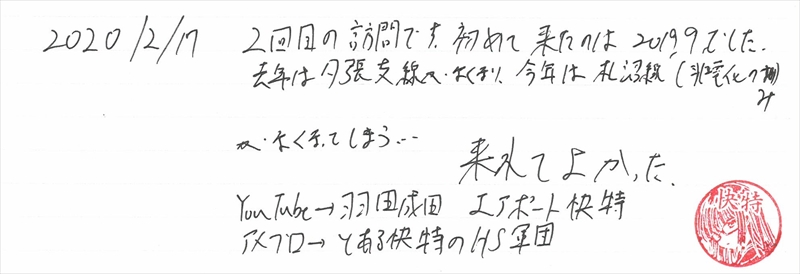 2020/2/17
2回目の訪問です。初めて来たのは2019,9でした。
去年は夕張支線が、なくなり、今年は札沼線(非電化の部
み
が、なくなってしまう…
来れてよかった。
YouTube→羽田成田 エアポート快特
アメブロ→とある快特のHS軍団
快特